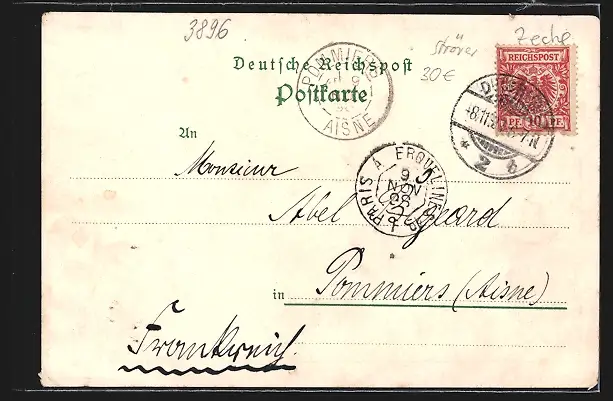 3896
Ströver
Zeche
30€
Deutsche Reichspost
Postkarte
REICHSPOST
10
PFENNIG
POMMIERS
AISNE
8.11.
* 2 b
PARIS A ERQUELINES
9
NOV
98
An
Monsieur
Abel Géard
in Pommiers (Aisne)
Frankreich.